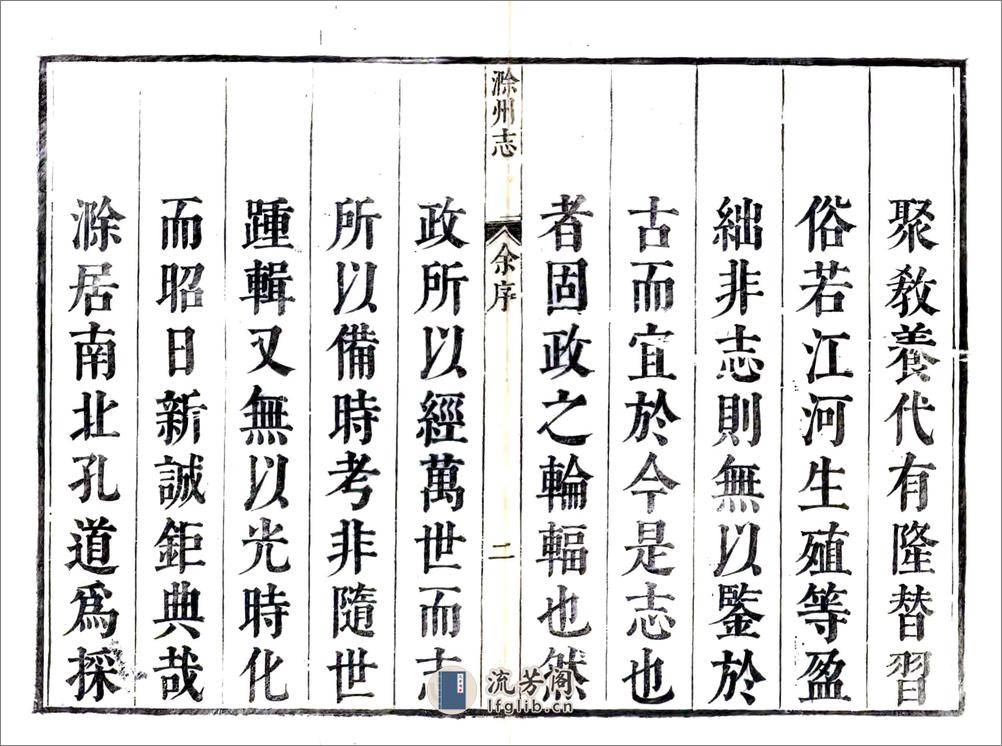 聚教養代有隆替習
俗若江河生殖等盈
絀非志則無以鑒於
古而宜於今是志也
者固政之輪輻也然
滁州志
余序
二
政所以經萬世而志
所以備時考非隨世
踵輯又無以光時化
而昭日新誠鉅典哉
滁居南北孔道為採
流芳阁
lfglib.cn